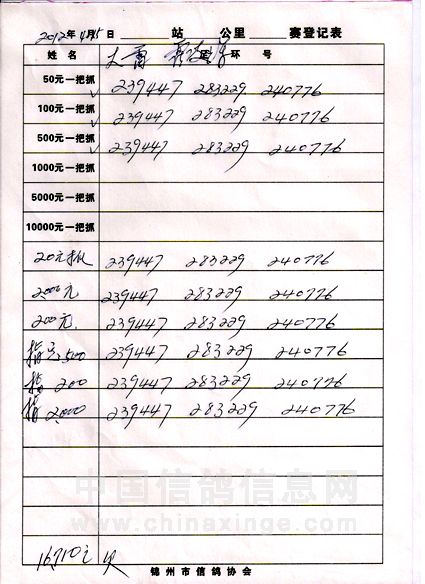 2012年4月15日 站 公里 赛登记表
姓名 足环号
50元一把抓 239447 283229 240776
100元一把抓 239447 283229 240776
500元一把抓 239447 283229 240776
1000元一把抓
5000元一把抓
10000元一把抓
20元 239447 283229 240776
2000元 239447 283229 240776
200元 239447 283229 240776
指定500 239447 283229 240776
指 200 239447 283229 240776
指 2000 239447 283229 240776
中国信鸽信息网
www.chinaxinge.com
16710元
锦州市信鸽协会